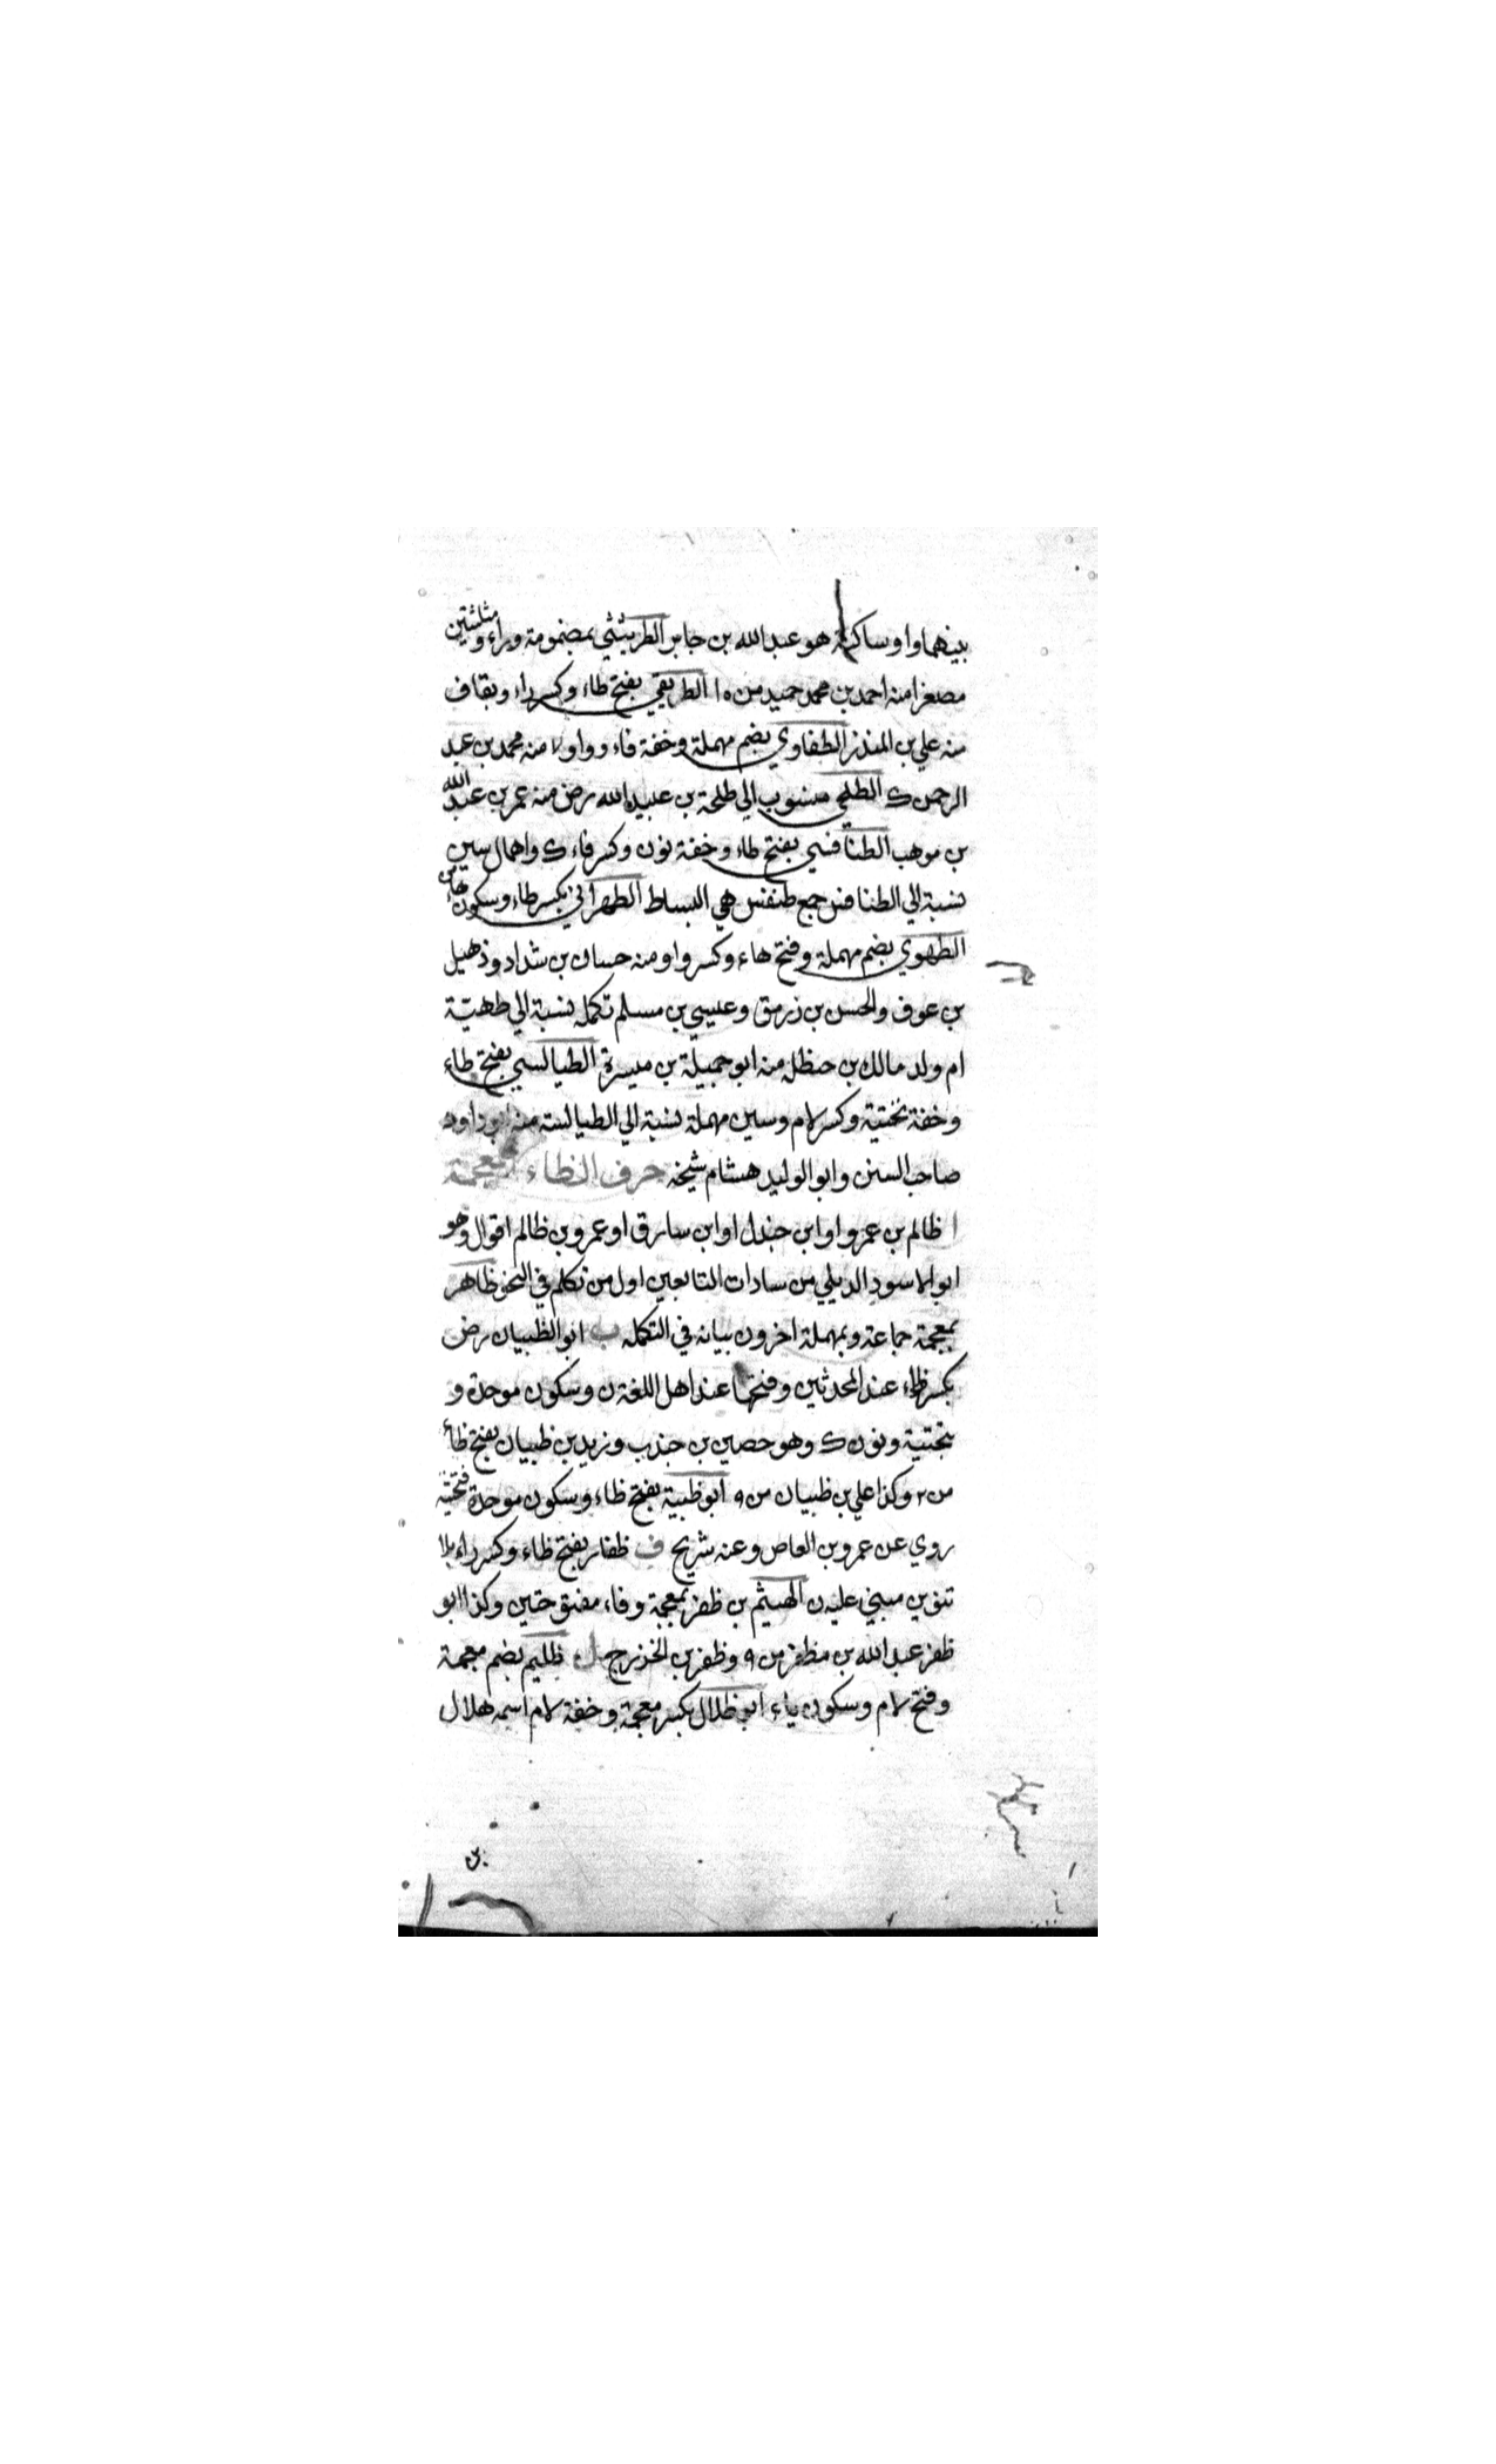 بينهما واو ساكنة هو عبد الله بن جابر الطريثيثي بمضمومة وراء ومثلثتين
مصغرا منه احمد بن محمد حميد من ١٥ الطريقي بفتح طاء وكسر راء وبقاف
منه علي بن المنذر الطفاوي بضم مهملة وخفة فاء وواو لا منه محمد بن عبد
الرحمن ك الطلحي منسوب الي طلحة بن عبيد الله رض منه عمر بن عبد الله
بن موهب الطنافسي بفتح طاء وخفة نون وكسر فاء ك واهمال سين
نسبة الي الطنافس جمع طنفس هي البساط الطهراني بكسر طاء وسكون هاء
الطهوي بضم مهملة وفتح هاء وكسر واو منه حسان بن شداد وذهيل
بن عوف والحسن بن زريق وعيسي بن مسلم تكمله نسبة الي طهية
ام ولد مالك بن حنظلة منه ابو جميلة بن ميسرة الطيالسي بفتح طاء
وخفة تحتية وكسر لام وسين مهملة نسبة الي الطيالسة منه ابو داود
صاحب السنن وابو الوليد هشام شيخه حرف الظاء المعجمة
ا ظالم بن عمرو او ابن جندل او ابن سارق او عمرو بن ظالم اقوال وهو
ابو الاسود الديلي من سادات التابعين اول من تكلم في النحو ظاهر
بمعجمة جماعة وبمهملة اخرون بيانه في التكمله ب ابو الظبيان رض
بكسر ظاء عند المحدثين وفتحها عند اهل اللغة ن وسكون موحدة و
بتحتية ونون ك وهو حصين بن جندب وزيد بن ظبيان بفتح ظاء
من ٢ وكذا علي بن ظبيان من ٩ ابو ظبية بفتح ظاء وسكون موحدة فتحتية
روي عن عمرو بن العاص وعنه شريح ف ظفار بفتح ظاء وكسر راء بلا
تنوين مبني عليه ن الهيثم بن ظفر بمعجمة وفاء مفتوحتين وكذا ابو
ظفر عبد الله بن مظفر من ٩ وظفر بن الخزرج ل ظليم بضم معجمة
وفتح لام وسكون ياء ابو ظلال بكسر معجمة وخفة لام اسمه هلال
بن